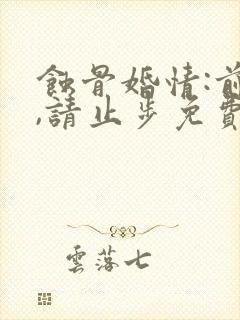 蝕骨婚情:前
,請止步免費
雲落七